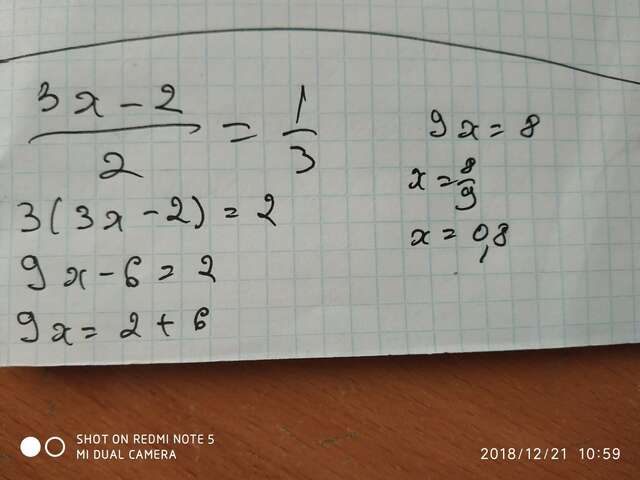 3x-2/2 = 1/3
3(3x-2) = 2
9x-6 = 2
9x = 2+6
9x = 8
x = 8/9
x = 0,8
SHOT ON REDMI NOTE 5
MI DUAL CAMERA
2018/12/21 10:59